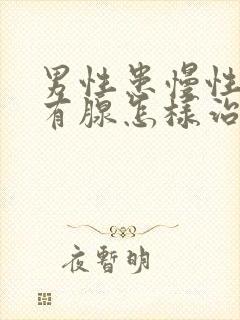 男性患慢性
有腺怎样治
夜暫明